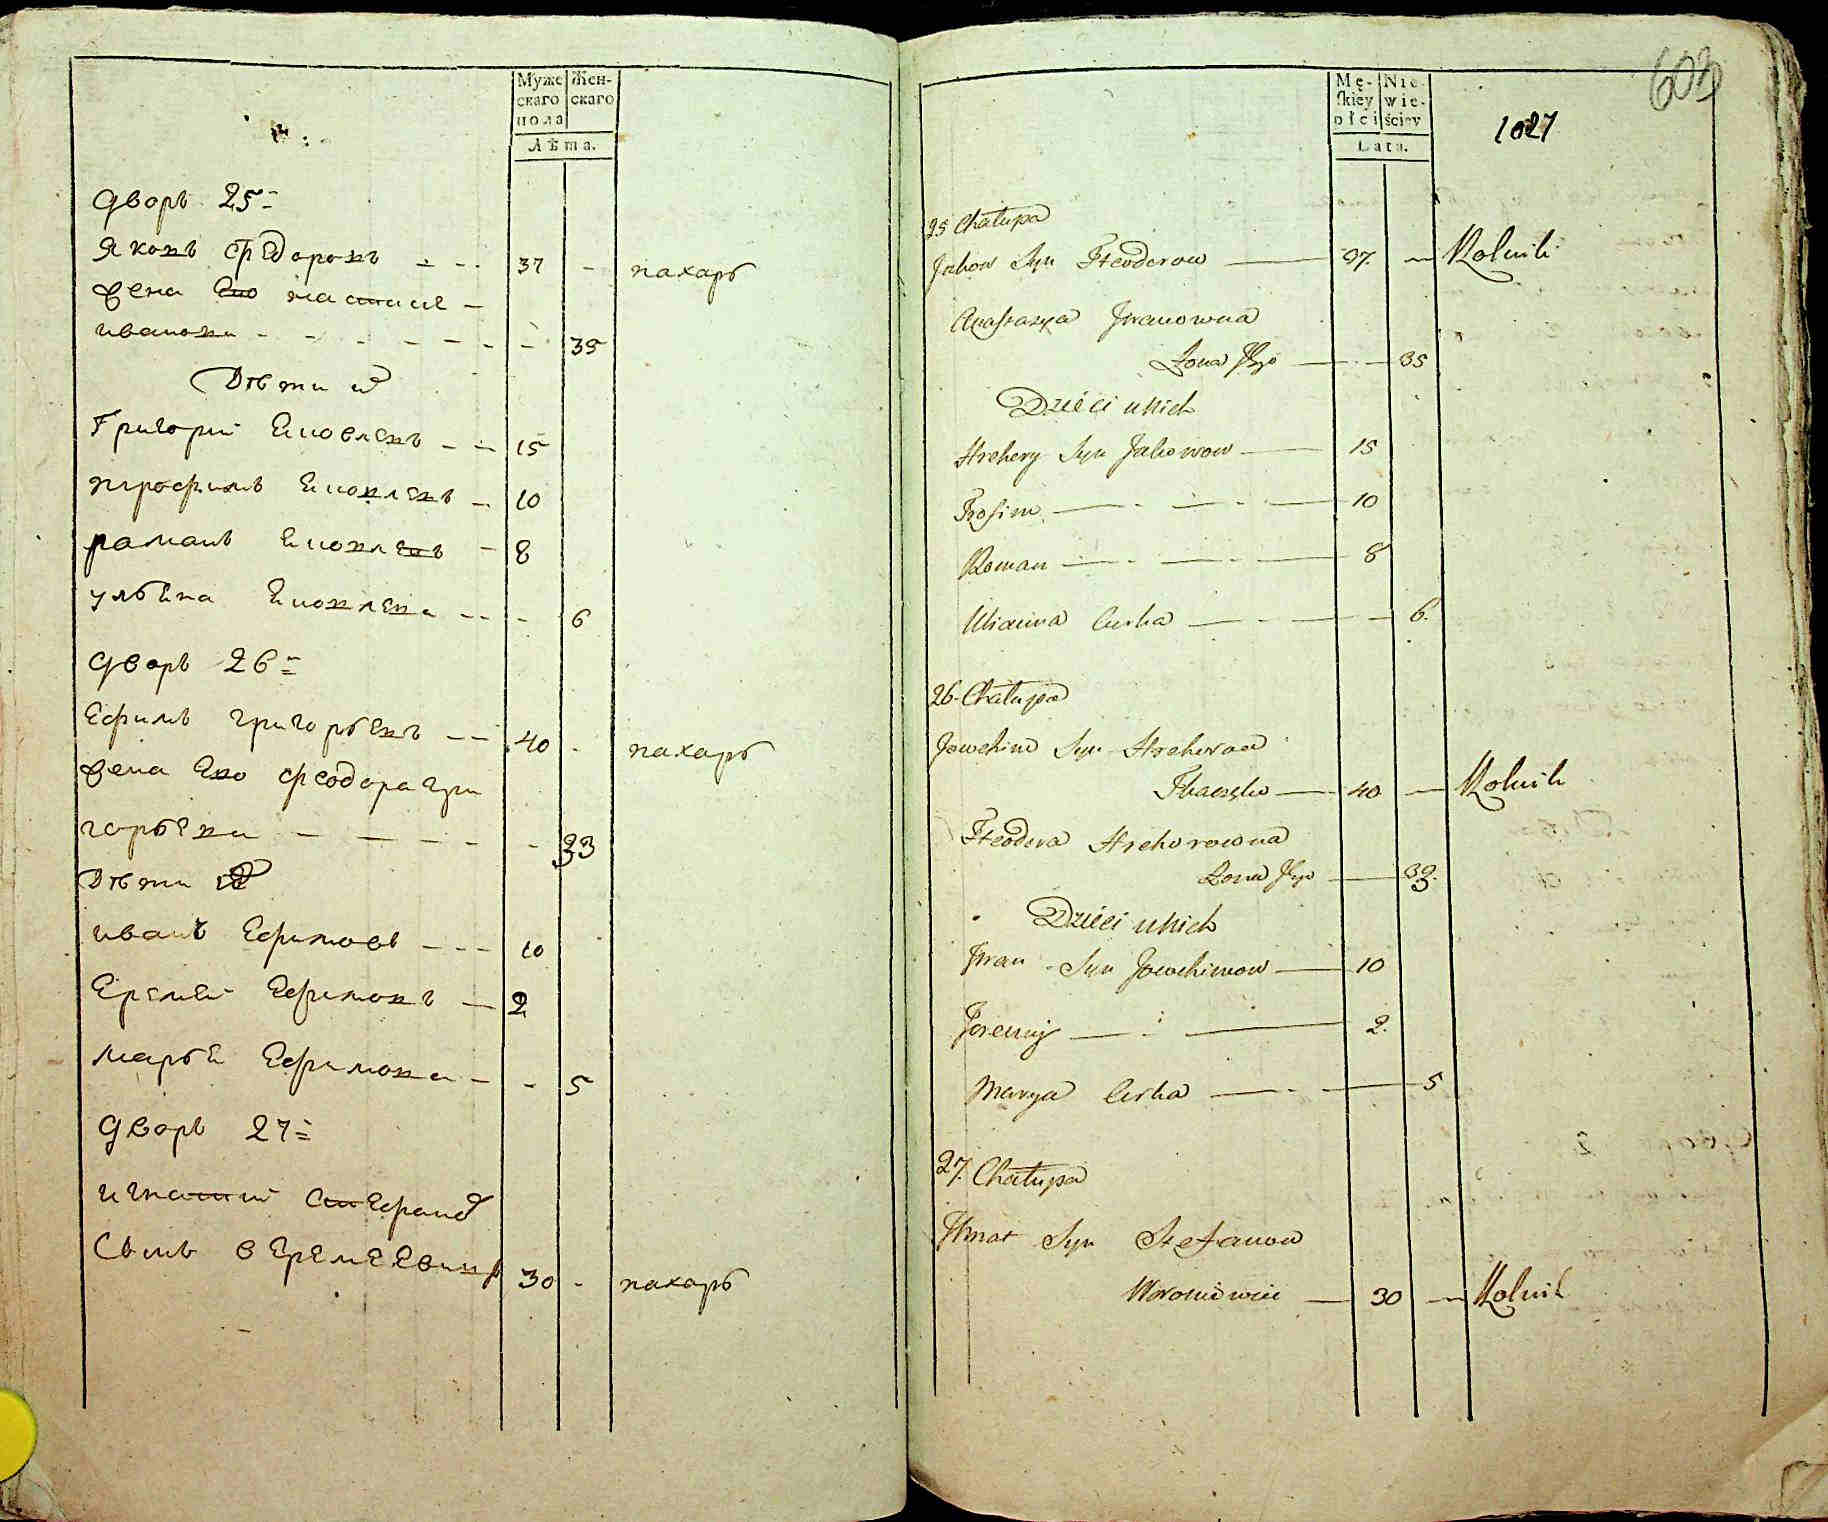 Муже Жен-
скаго скаго
пола
Лѣта.
дворъ 25
Яковъ Фѣдоровъ 37 - пахарь
жена Его настасие
иванова 35
Дѣти их
Григорий Яковлевъ 15
трофимъ Яковлевъ 10
раманъ Яковлевъ 8
ульѣна Яковлева 6
дворъ 26
Ефимъ григорьевъ 40 - пахарь
жена Его феодора гри
горьева 33
Дѣти их
иванъ Ефимовъ 10
Еремей Ефимовъ 2
марьѣ Ефимова 5
дворъ 27
игнатий Стефанов
Сынъ 30 - пахарь
603
Mę- Nie-
skiey wie-
płci ściey
Lata.
1027
25 Chałupa
Jakow Syn Fteodorow 37. Rolnik
Anastazya Iwanowna
Żona Jego 35
Dzieci u Nich
Hrehory Syn Jakowow 15
Trofim 10
Roman 8
Ulianna Curka 6.
26. Chałupa
Jowchim Syn Hrehorow
40 Rolnik
Fteodora Hrehorowna
Żona Jego 33.
Dzieci u Nich
Iwan Syn Jowchimow 10
Jeremij 2.
Marya Curka 5
27. Chałupa
Ihnat Syn Stefanow
30 Rolnik